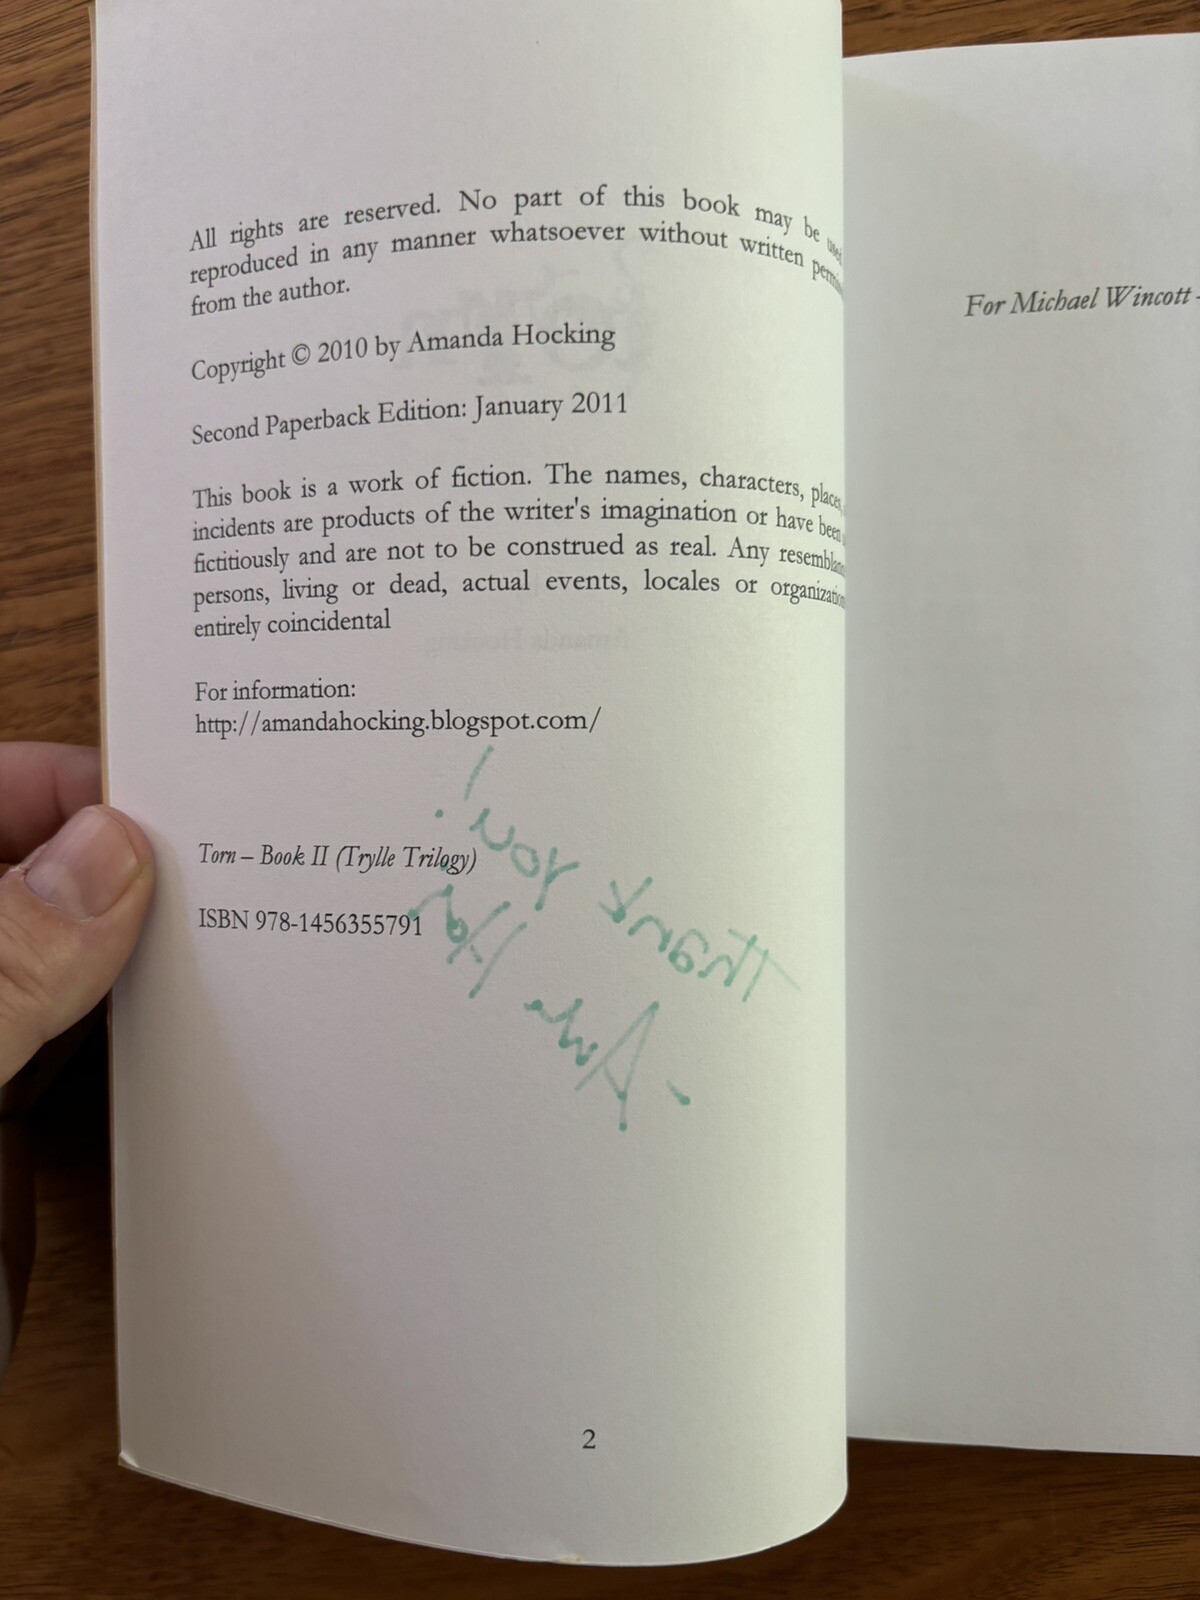 All rights are reserved. No part of this book may be used
reproduced in any manner whatsoever without written permis
from the author.
Copyright © 2010 by Amanda Hocking
Second Paperback Edition: January 2011
This book is a work of fiction. The names, characters, places,
incidents are products of the writer's imagination or have been
fictitiously and are not to be construed as real. Any resemblanc
persons, living or dead, actual events, locales or organization
entirely coincidental
For information:
http://amandahocking.blogspot.com/
Thank you!
Torn – Book II (Trylle Trilogy)
ISBN 978-1456355791
2
For Michael Wincott -